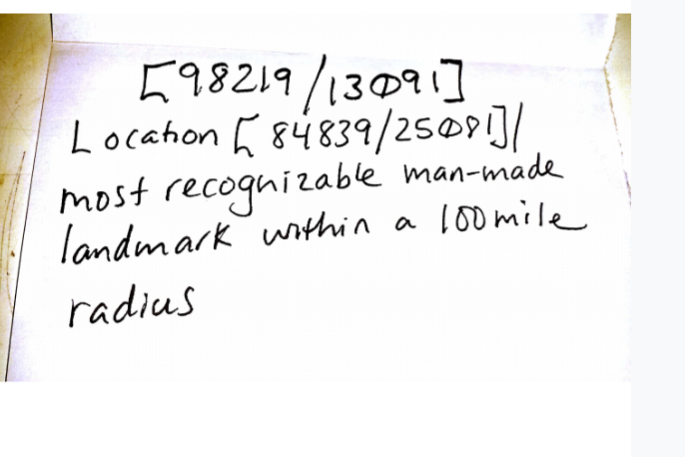 [98219/13091]
Location [84839/25081]/
most recognizable man-made
landmark within a 100 mile
radius